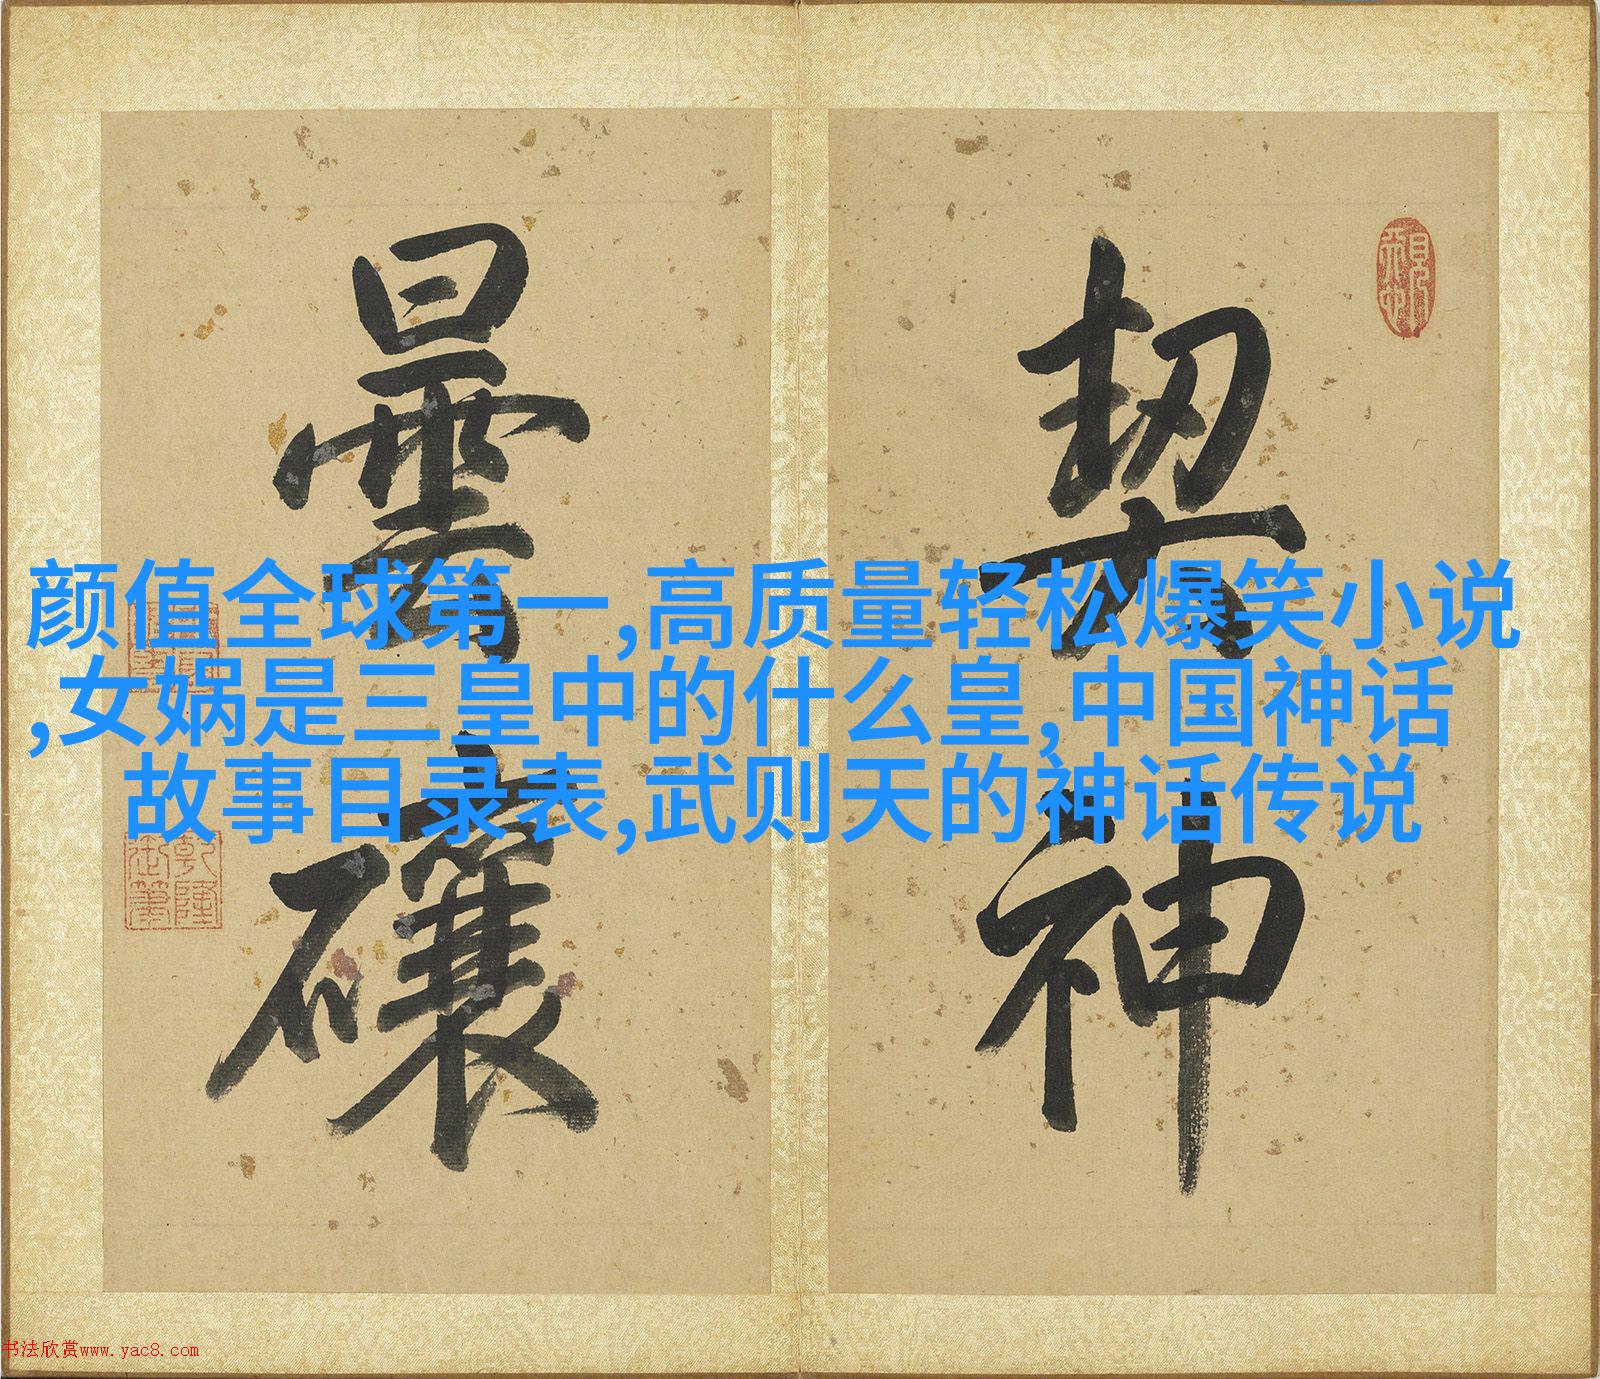 颜值全球第一,高质量轻松爆笑小说
,女娲是三皇中的什么皇,中国神话
故事目录表,武则天的神话传说
契神
曇礞
乾隆
御筆
书法欣赏www.yac8.com